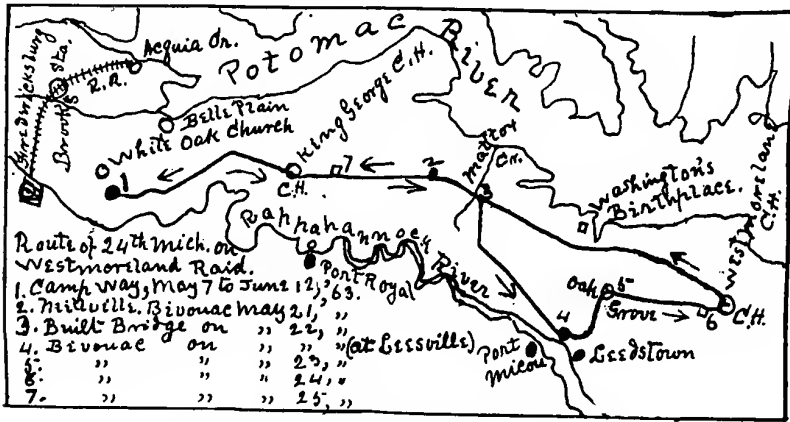 Fredericksburg
Brooks Sta.
R.R.
Acquia Cr.
Potomac River
Belle Plain
White Oak Church
King George C.H.
C.H.
1
7
2
Mattox
Cr.
3
Washington's
Birthplace.
Westmoreland
C.H.
Rappahannock River
Port Royal
Oak
Grove
5
6
C.H.
4
Port
Micou
Leedstown
Route of 24th Mich. on
Westmoreland Raid.
1. Camp Way, May 7 to June 12, '63.
2. Millville. Bivouac May 21, "
3. Built Bridge on " 22, "
4. Bivouac on " " " (at Leesville)
5. " " " 23, "
6. " " " 24, "
7. " " " 25, "